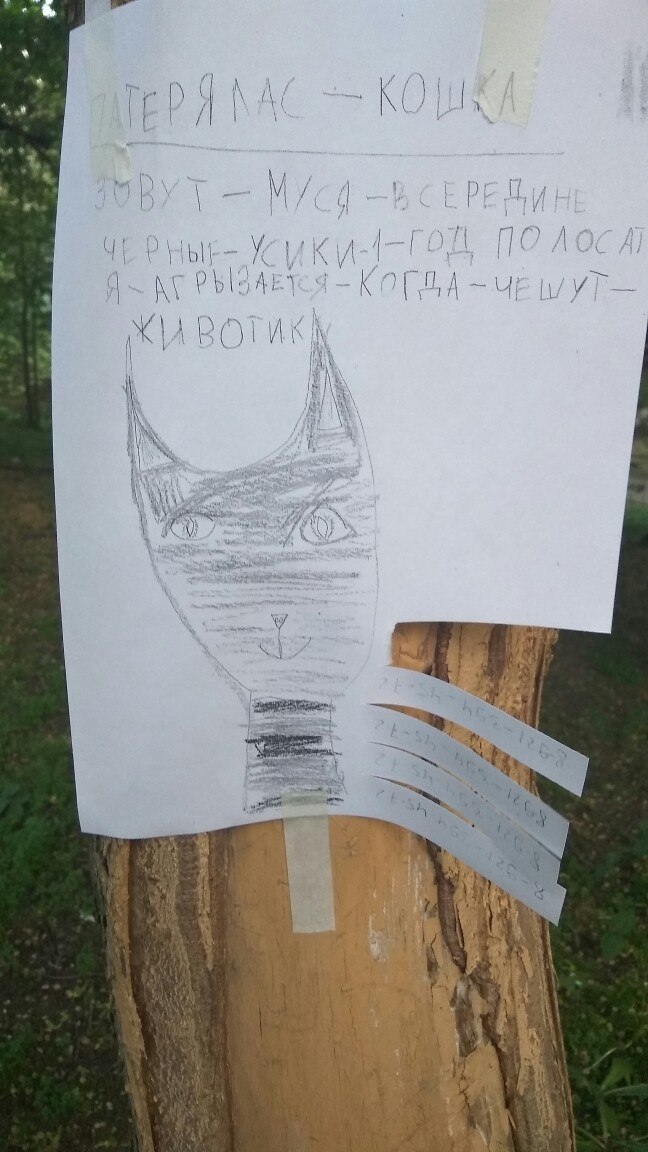 ПАТЕРЯЛАС — КОШКА
ЗОВУТ — МУСЯ — В СЕРЕДИНЕ
ЧЕРНЫЕ — УСИКИ - 1 - ГОД ПОЛОСАТ
Я - АГРЫЗАЕТСЯ - КОГДА - ЧЕШУТ -
ЖИВОТИК